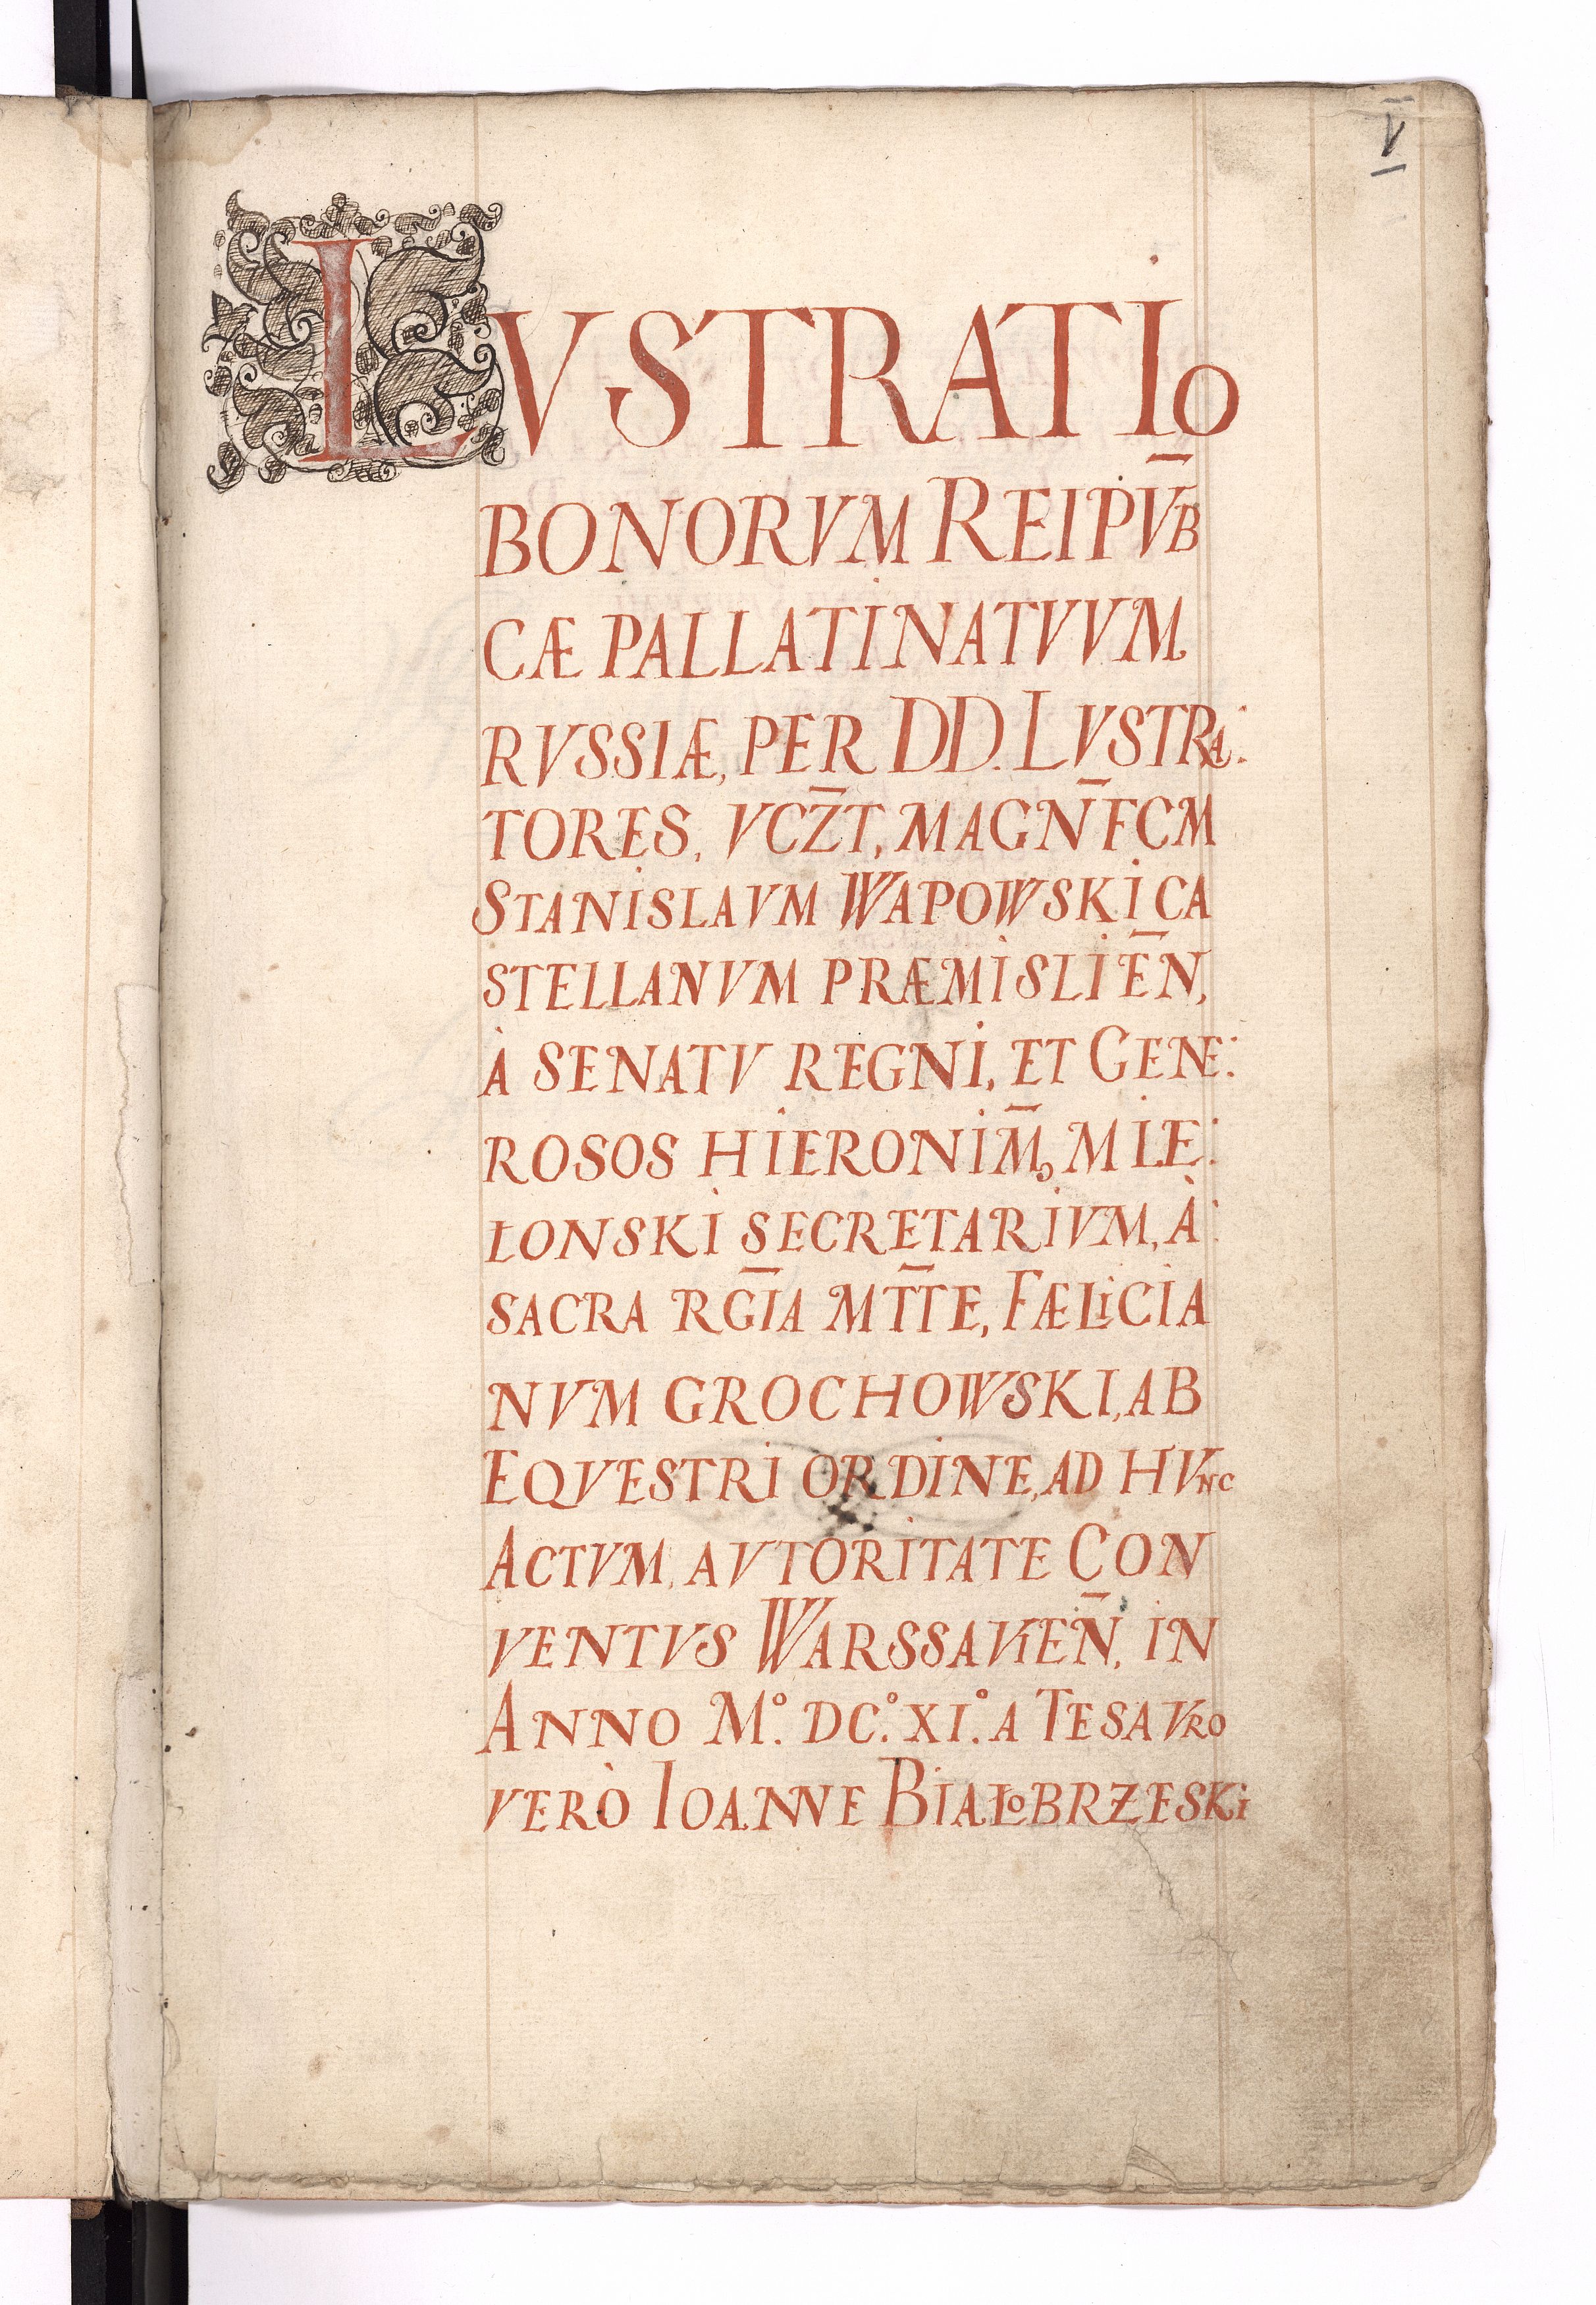 V
LVSTRATIO
BONORVM REIPV̄B
CÆ PALLATINATVVM
RVSSIÆ, PER DD. LVSTRA:
TORES, VCZ̄T, MAGN̄FCM
STANISLAVM WAPOWSKI CA
STELLANVM PRÆMISLIEN̄,
À SENATV REGNI, ET GENE:
ROSOS HIERONIM̄, MIE:
ŁONSKI SECRETARIVM, À:
SACRA RḠIA MT̄TE, FÆLICIA
NVM GROCHOWSKI, AB
EQVESTRI ORDINE, AD HVNC
ACTVM, AVTORITATE CON
VENTVS WARSSAVIEN̄, IN
ANNO Mº. DCº. XIº. A TESAVRO
VERÒ IOANNE BIAŁOBRZESKI